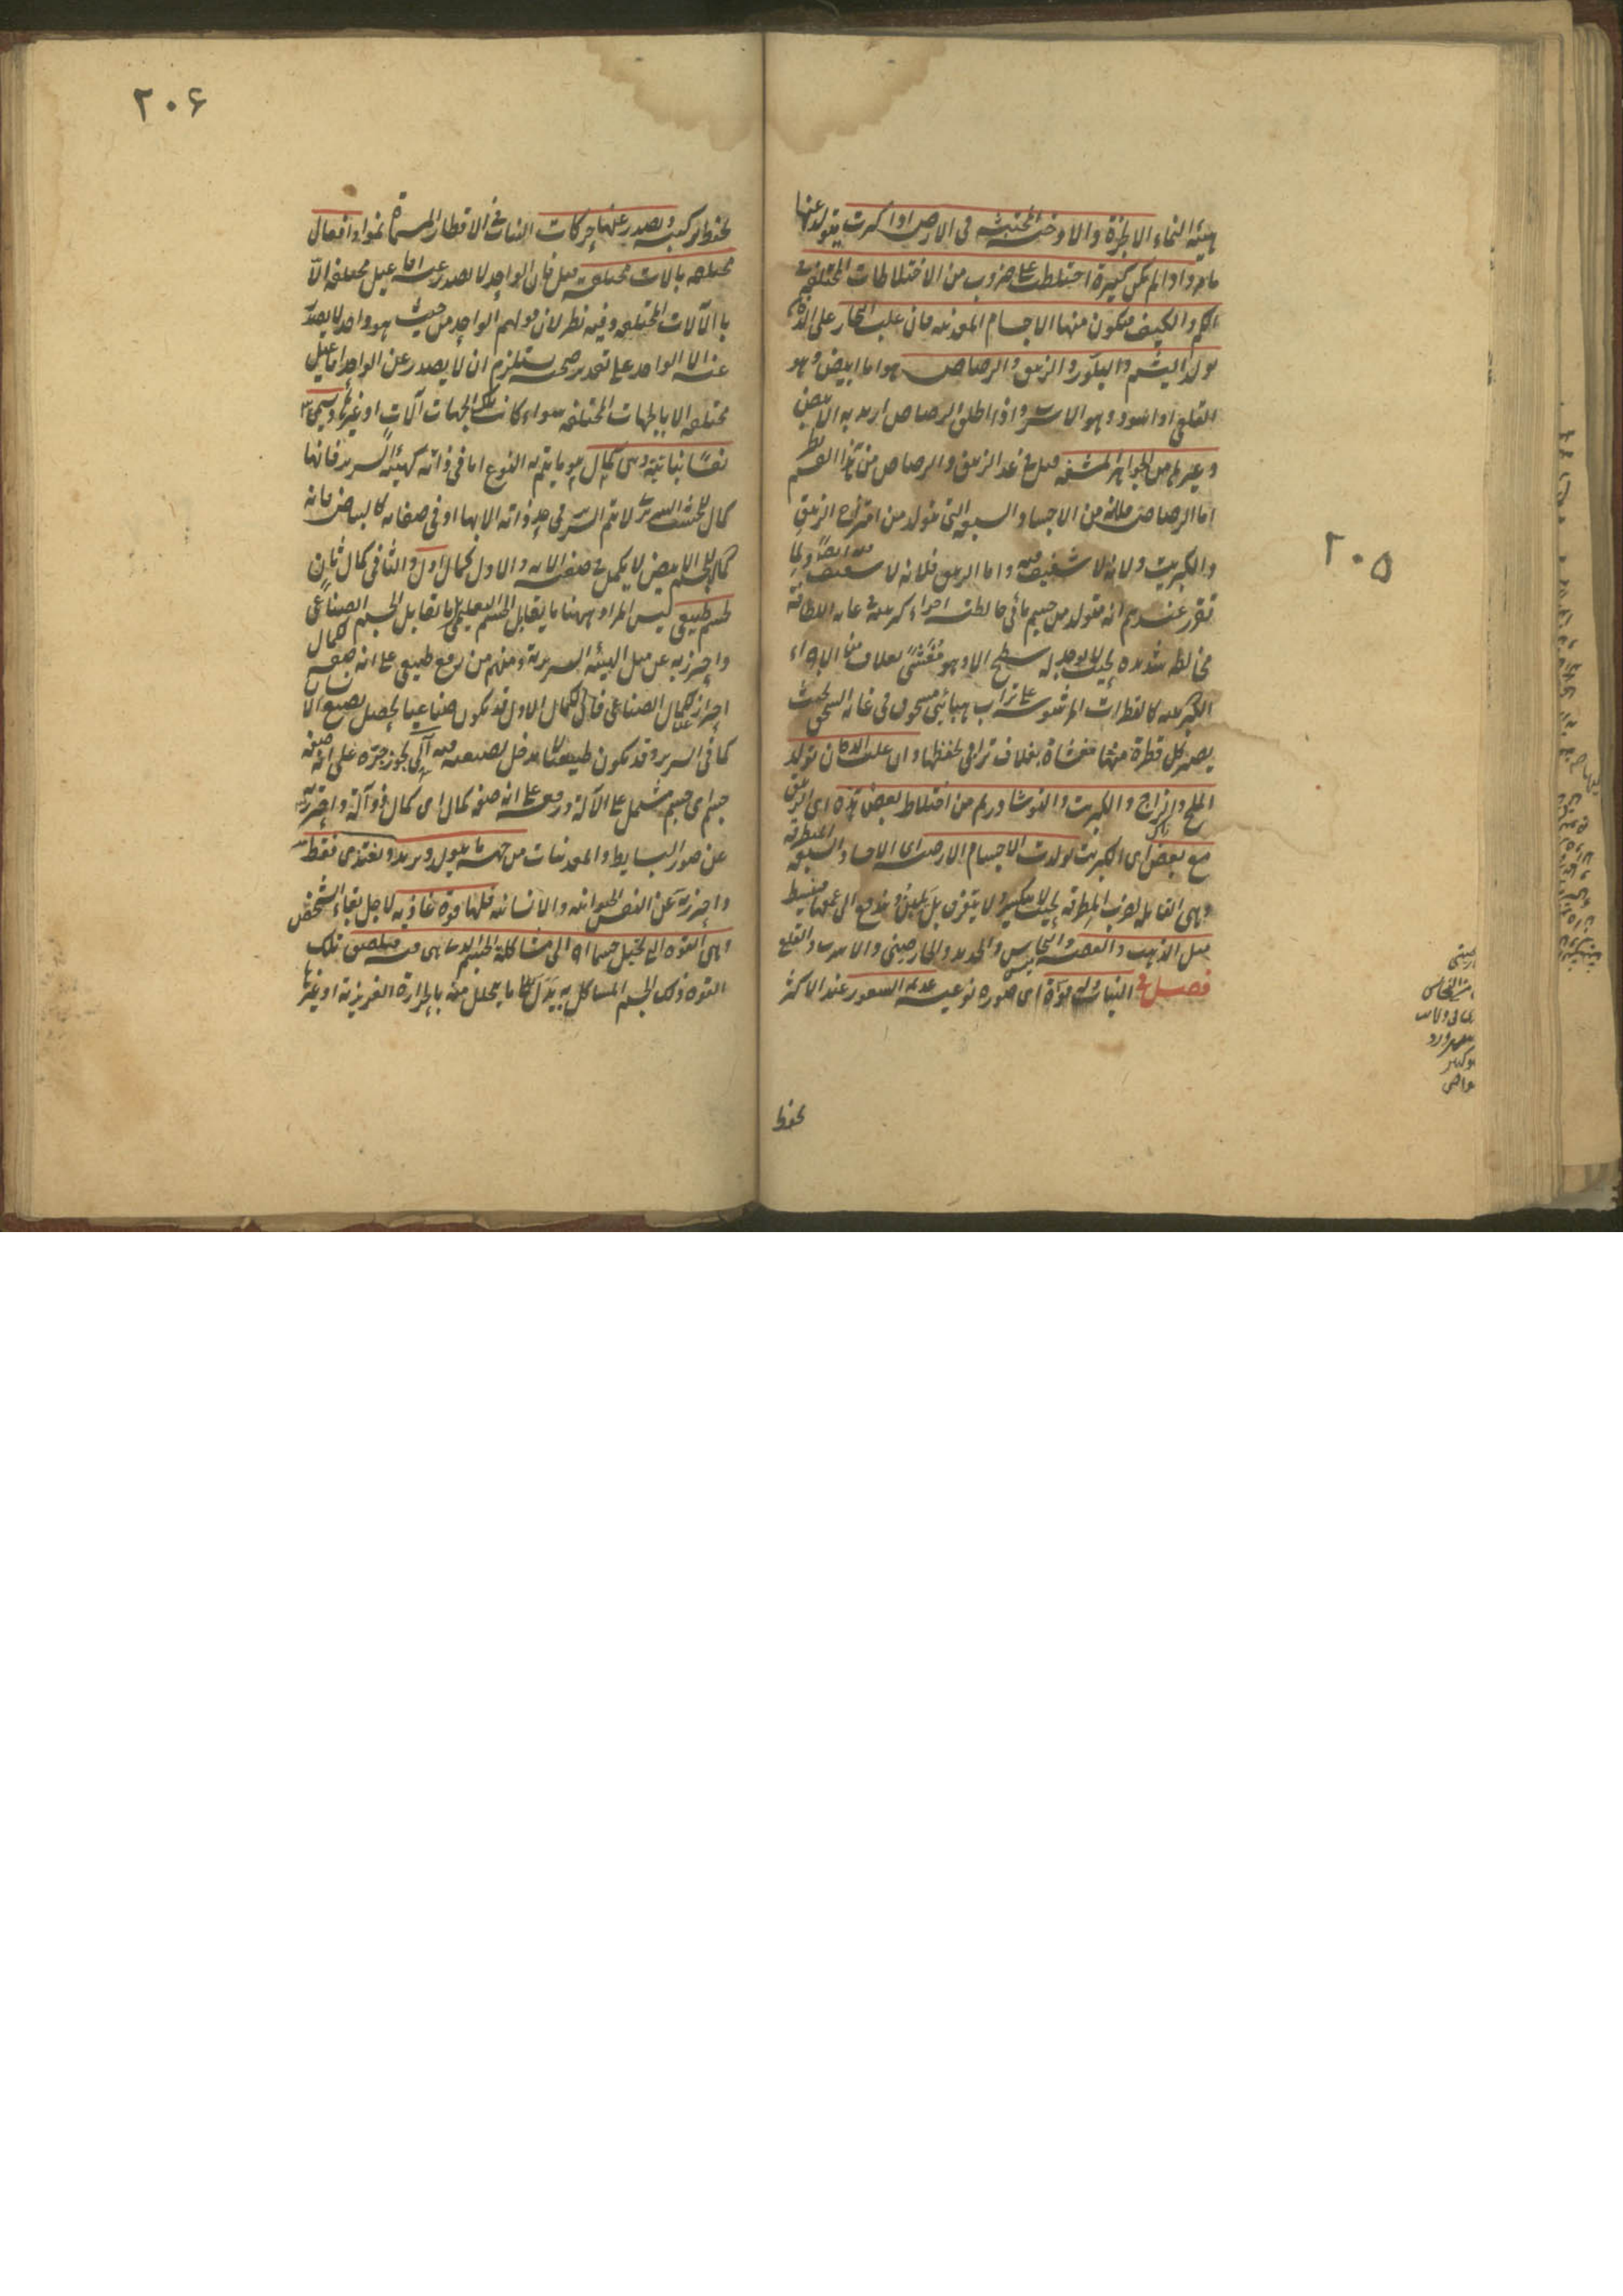 ٢٠٥
هيئة النماء الابخرة والادخنة المحتبسة فى الارض اذا كثرت يتولد عنها
ما مر واذا لم تكن كثيرة اختلطت على ضروب من الاختلاطات المختلفة فى
الكم والكيف فتكون منها الاجسام المعدنية فان غلب البخار على الدخان
تولد اليشم والبلور والزيبق والرصاص هو اما ابيض وهو
القلعى او اسود وهو الاسرب واذا اطلق الرصاص اريد به الابيض
وغيرها من الجواهر المشفة قيل فى عد الزيبق والرصاص من هذا القسم نظر
اما الرصاص فلانه من الاجساد السبعة التى تتولد من امتزاج الزيبق
والكبريت ولانه لا شفيف فيه واما الزيبق فلانه لا شفيف فيه ايضا ولما
تقرر عندهم انه متولد من جسم مائى خالطته اجزاء كبريتية فى غاية اللطافة
مخالطة شديدة بحيث لا يوجد له سطح الا وهو مغشى بغلاف من الاجزاء
الكبريتية كالقطرات المرشوشة على تراب هبائى مسحوق فى غاية السحق بحيث
يصير كل قطرة منها مغشاة بغلاف ترابى يحفظها وان غلب الدخان تولد
الملح والزاج والكبريت والنوشادر ثم من اختلاط بعض هذه اى الزيبق
مع بعض اى الكبريت تولدت الاجسام الارضية اى الاجساد السبعة المتطرقة
وهى القابلة لضرب المطرقة بحيث لا تنكسر ولا يتفرق بل تلين وتندفع الى عمقها فتنبسط
مثل الذهب والفضة والنحاس والحديد والخارصينى والاسرب والقلع
فصل فى النبات وله قوة اى صورة نوعية عديمة الشعور عند الاكثر
يحفظ
٢٠۶
يحفظ تركيبه ويصدر عنها حركات النبات فى الاقطار المسماة نموا وافعال
مختلفة بالات مختلفة قيل فان الواحد لا يصدر عنه افاعيل مختلفة الا
بالآلات المختلفة وفيه نظر لان قولهم الواحد من حيث هو واحد لا يصدر
عنه الا الواحد على تقدير صحته يستلزم ان لا يصدر عن الواحد افاعيل
مختلفة الا بالجهات المختلفة سواء كانت تلك الجهات آلات او غيرها ويسمى
نفسا نباتية وهى كمال هو ما يتم به النوع اما فى ذاته كهيئة السرير فانها
كمال للخشب السريرى لا يتم السرير فى حد ذاته الا بها او فى صفاته كالبياض فانه
كمال للجسم الابيض لا يكمل فى صفته الا به والاول كمال اول والثانى كمال ثان
لجسم طبيعى ليس المراد ههنا ما يقابل الجسم التعليمى بل ما يقابل الجسم الصناعى
واحترز به عن مثل الهيئة السريرية ومنهم من رفع طبيعى على انه صفة كمال
احترازا عن الكمال الصناعى فان الكمال الاول قد يكون صناعيا يحصل بصنع الانسان
كما فى السرير وقد يكون طبيعيا لا مدخل لصنعه فيه آلى يجوز جره على انه صفة
جسم اى جسم مشتمل على الآلة ورفعه على انه صفة كمال اى كمال ذو آلة واحترز به
عن صور البسايط والمعدنيات من جهة ما يتولد ويزيد ويغتذى فقط
واحترز به عن النفس الحيوانية والانسانية فلها قوة غاذية لاجل بقاء الشخص
وهى القوة التى تحيل جسما اخر الى مشاكلة الجسم الذى هى فيه فيلصق تلك
القوة ذلك الجسم المشاكل به بدل ما يتحلل منه بالحرارة الغريزية او غيرها